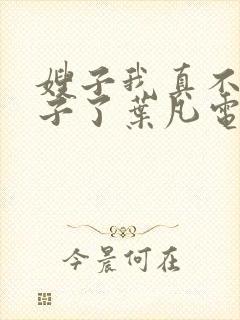 嫂子我真不
子了葉凡電
今晨何在